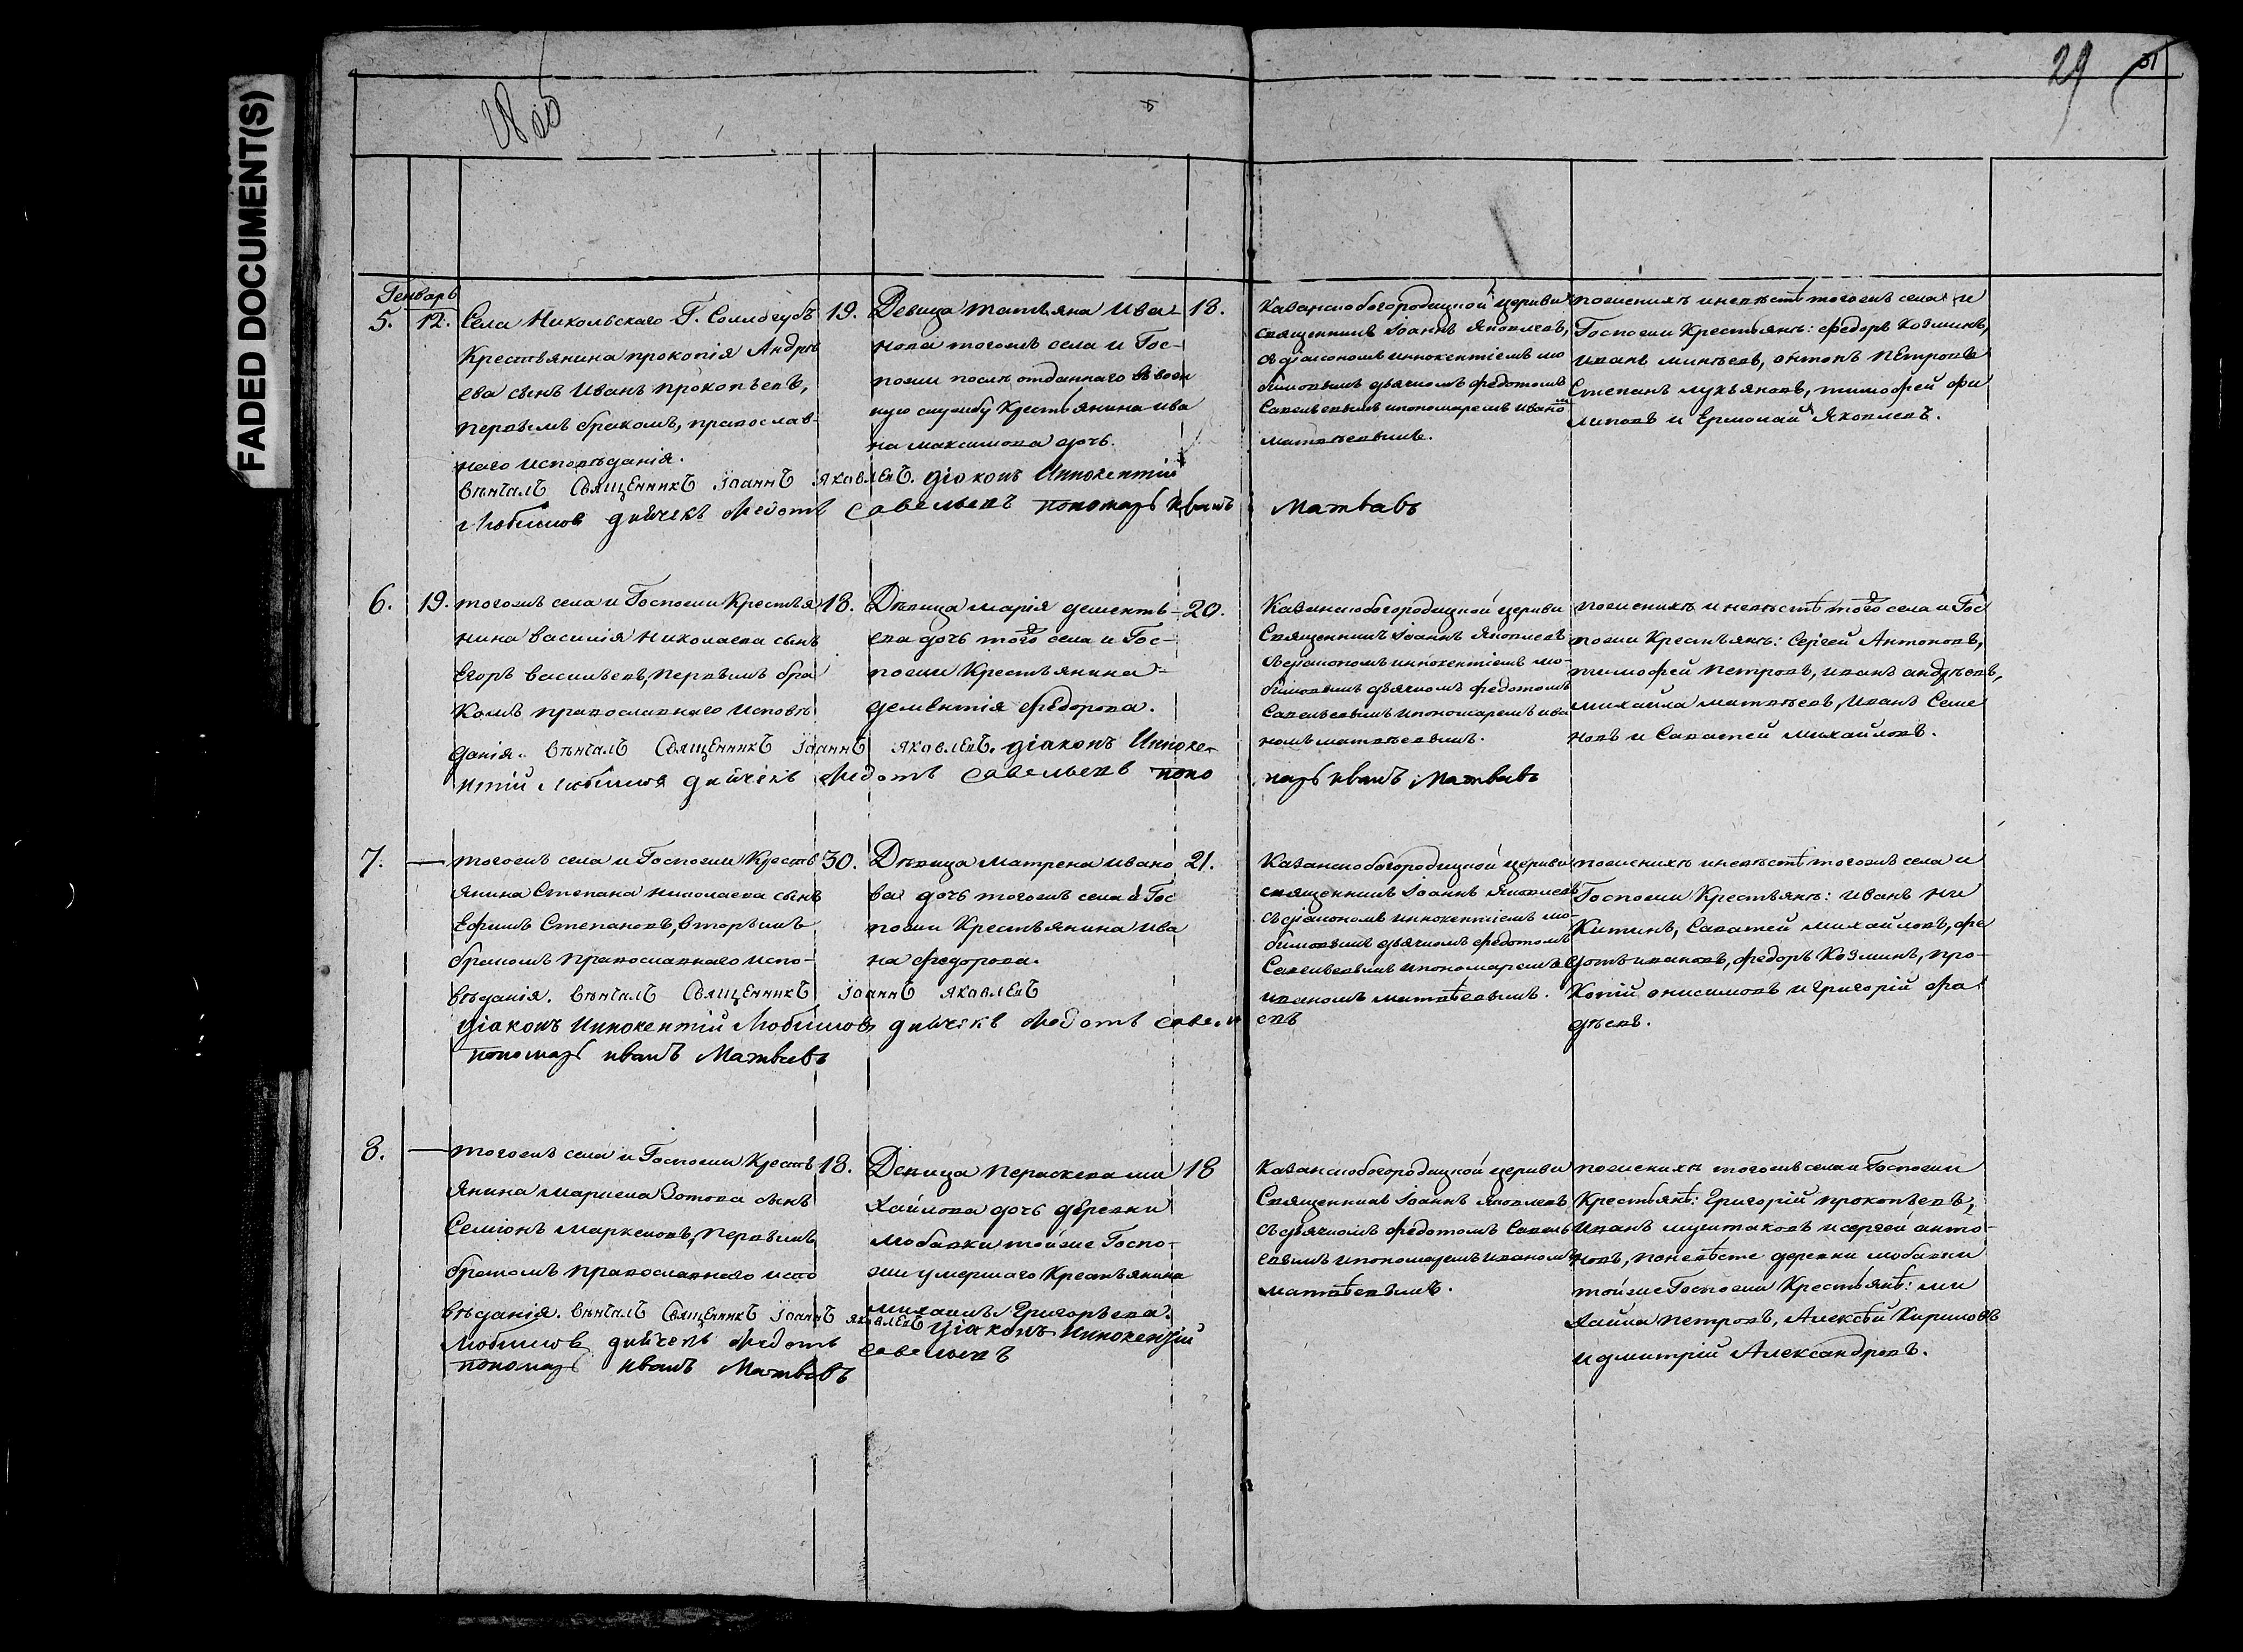 FADED DOCUMENT(S)
28 об
29
Генварь
5. 12. Села Никольскаго Г. Соллогубъ 19.
Крестьянина прокопія Андре
ева сынъ Иванъ прокопьевъ,
первымъ бракомъ, православ-
наго исповѣданія.
Девица татьяна Ива 18.
нова тогожъ села и Гос-
пожи послѣ отданнаго въ воен
ную службу Крестьянина ива
на максимова дочь.
Казанско богородицкой церкви
священникъ Іоаннъ Яковлевъ,
съ діакономъ иннокентіемъ лю
бимовымъ дьячкомъ федотомъ
Савельевымъ ипономаремъ ивано
матвѣевымъ.
пожениху иневѣстѣ тогожъ села и
Госпожи Крестьянъ: федоръ Козминъ,
иванъ минѣевъ, антонъ петровъ
Степанъ лукьяновъ, тимофей фи
липовъ и Ермолай Яковлевъ.
вѣнчалъ Священникъ Іоаннъ яковлевъ. діаконъ Иннокентій
Любимовъ дьячекъ Федотъ Савельевъ пономарь иванъ Матвѣвъ
6. 19. тогожъ села и Госпожи Крестья 18.
нина василія николаева сынъ
Егоръ васильевъ, первымъ бра
комъ православнаго исповѣ
данія.
Дѣвица марія дементь 20.
ева дочь того села и Гос-
пожи Крестьянина
дементія федорова.
Казанско богородицкой церкви
Священникъ Іоаннъ Яковлевъ
съ діакономъ иннокентіемъ лю-
бимовымъ дьячкомъ федотомъ
Савельевымъ ипономаремъ ива
номъ матвѣевымъ.
пожениху и невѣстѣ того села и Гос
пожи Крестьянъ: Сергей Антоновъ,
тимофей петровъ, иванъ андрѣевъ,
михайла матвѣевъ, Иванъ Семе
новъ и Саватей михайловъ.
вѣнчалъ Священникъ Іоаннъ яковлевъ. діаконъ Иннокен
нтій Любимовъ дьячекъ Федотъ Савельевъ поно
марь иванъ Матвѣвъ
7. — тогожъ села и Госпожи Кресть 30.
янина Степана николаева сынъ
Ефимъ Степановъ, вторымъ
бракомъ православнаго испо-
вѣданія.
Дѣвица матрена ивано 21.
ва дочь тогожъ села и Гос
пожи Крестьянина ива
на федорова.
Казанско богородицкой церкви
священникъ Іоаннъ Яковлевъ
съ діакономъ иннокентіемъ лю-
бимовымъ дьячкомъ федотомъ
Савельевымъ ипономаремъ
иваномъ матвѣевымъ.
пожениху иневѣстѣ тогожъ села и
Госпожи Крестьянъ: иванъ ни
Китинъ, Саватей михайловъ, фе
дотъ ивановъ, федоръ Козминъ, про-
Копій онисимовъ и григорій фа
дѣевъ.
вѣнчалъ Священникъ Іоаннъ яковлевъ
діаконъ Иннокентій Любимовъ дьячекъ Федотъ Савель
евъ
пономарь иванъ Матвѣвъ
8. — тогожъ села и Госпожи Кресть 18.
янина маркела Зотова сынъ
Семіонъ маркеловъ, первымъ
бракомъ православнаго испо
вѣданія.
Девица пераскева ми 18
хайлова дочь деревни
лобавки тойже Госпо-
жи умершаго Крестьянина
михаилы Григорьева.
Казанско богородицкой церкви
Священникъ Іоаннъ яковлевъ
съ дьячкомъ федотомъ Савель
евымъ ипономаремъ иваномъ
матвѣевымъ.
пожениху тогожъ села и Госпожи
Крестьянъ: Григорій прокопьевъ,
Иванъ и сергей анто-
новъ, поневѣсте деревни лобавки
тойже Госпожи Крестьянъ: ми
хайла петровъ, Алексѣй Кириловъ
и дмитрій Александровъ.
вѣнчалъ Священникъ Іоаннъ яковлевъ діаконъ Иннокентій
Любимовъ дьячекъ Федотъ Савельевъ
пономарь иванъ Матвѣвъ